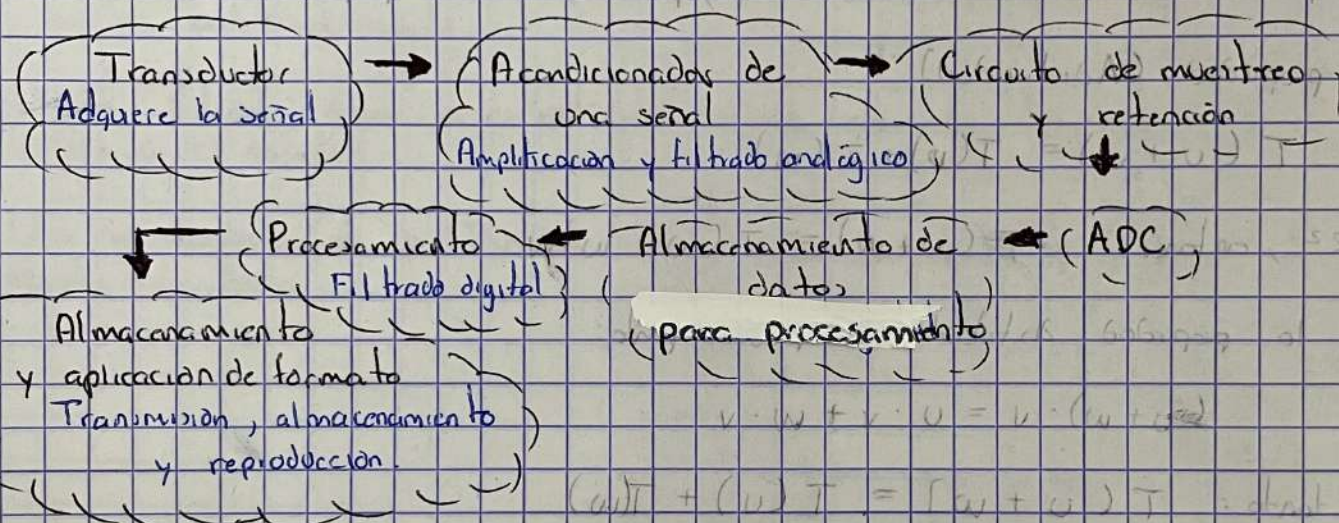 Transductor
Adquere la señal
Acondicionador de
una señal
Amplificación y filtrado analógico
Circuito de muestreo
y retención
ADC
Almacenamiento de
datos
para procesamiento
Procesamiento
Filtrado digital
Almacenamiento
y aplicación de formato
Transmisión, almacenamiento
y reproducción.